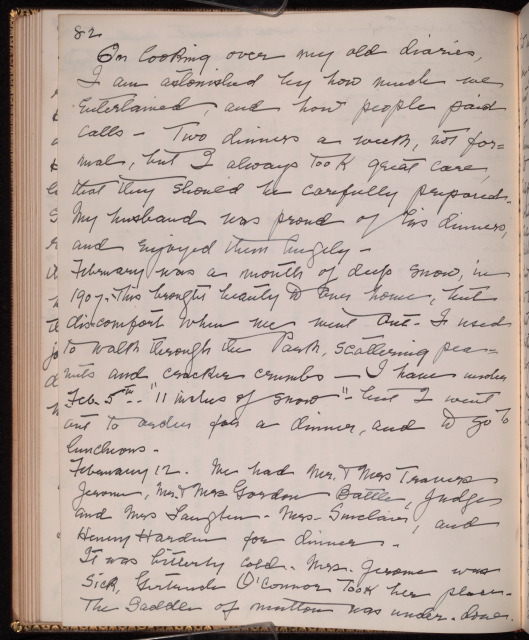 82
On looking over my old diaries,
I am astonished by how much we
entertained, and how people paid
calls - Two dinners a week, not for=
mal, but I always took great care,
that they should be carefully prepared.
My husband was proud of his dinners,
and enjoyed them hugely -
February was a month of deep snow, in
1907. This brought beauty to our home, but
discomfort when we went out. I used
to walk through the Park, scattering pea=
nuts and cracker crumbs - I have under
Feb. 5th - "11 inches of snow" - but I went
out to order for a dinner, and to go to
luncheons -
February 12. We had Mr. & Mrs Travers
Jerome, Mr. & Mrs Gordon Battle, Judge
and Mrs Mrs. Sinclair, and
Henry Hardin for dinner -
It was bitterly cold. Mrs. Jerome was
sick, Gertrude O'Connor took her place -
The Saddle of mutton was under-done.